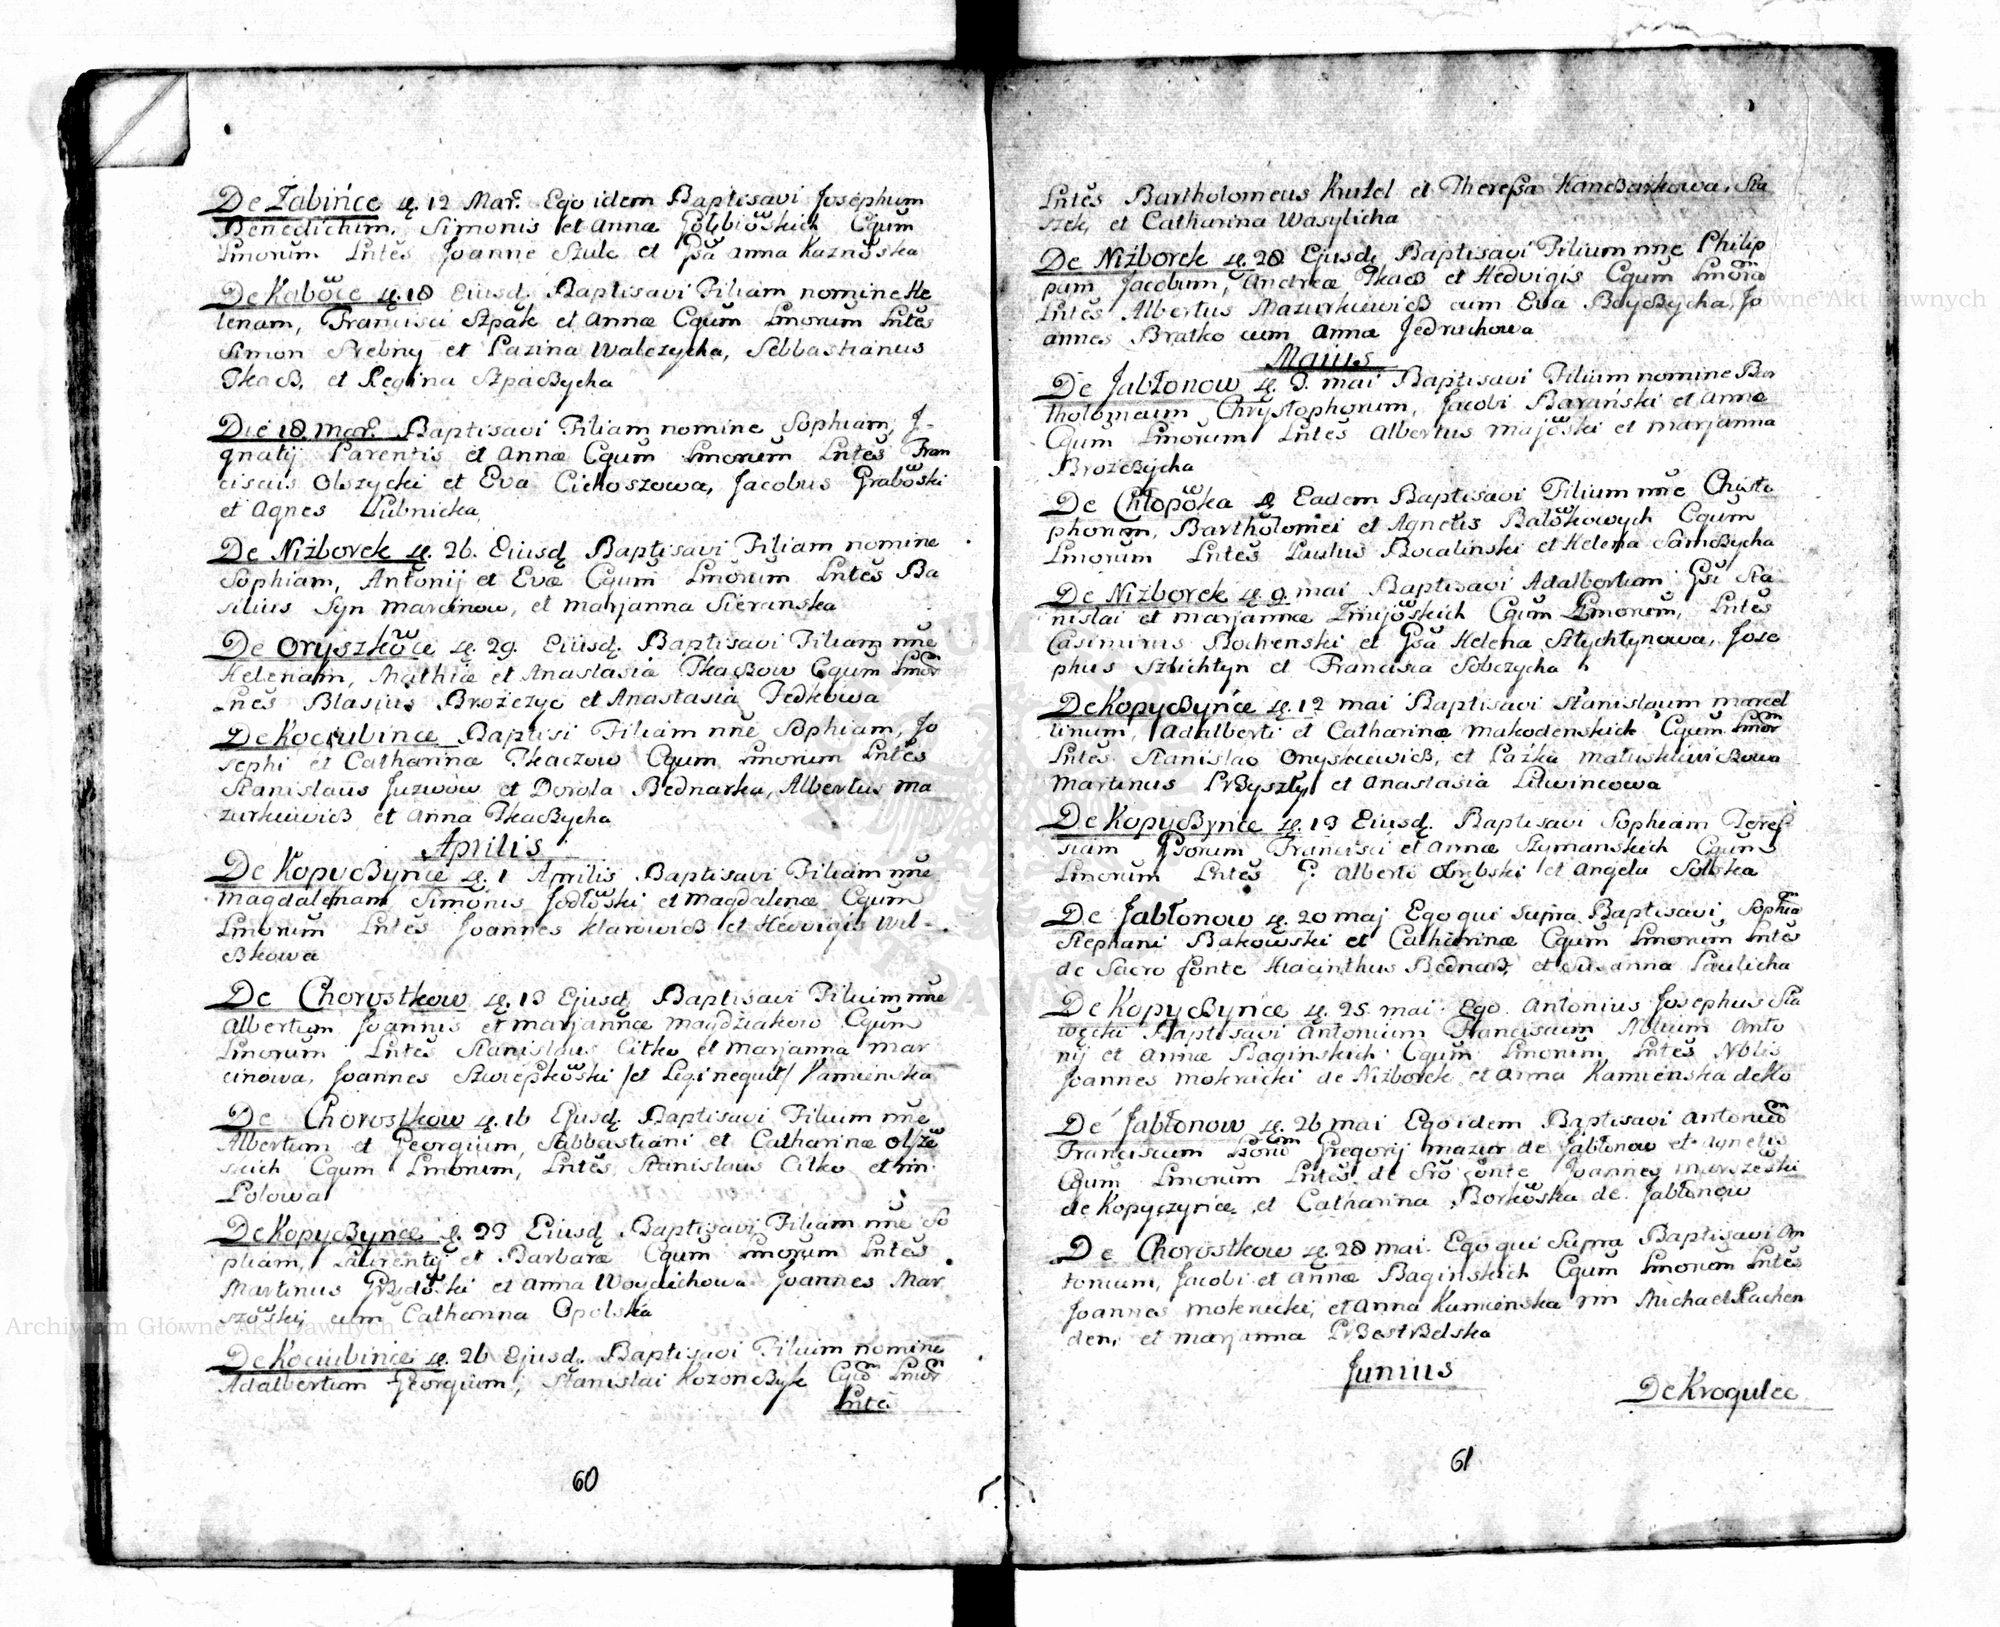 De Żabińce d. 12 Mar. Ego idem Baptisavi Josephum
Benedictum, Simonis et Annæ Gołbiowskich Cgum
Lmorum Lntes Joanne Szulc et Gsa Anna Kaznowska
De Kobowce d. 18 Eiusd. Baptisavi Filiam nomine He
lenam, Francisci Szpak et Annæ Cgum Lmorum Lntes
Simon Srebny et Pazina Walczycha, Sebbastianus
Tkacz, et Regina Szpaczycha
Die 18 Mar. Baptisavi Filiam nomine Sophiam, J-
gnatij Parentis et Annæ Cgum Lmorum Lntes Fran
ciscus Olszycki et Eva Cichoszowa, Jacobus Grabowski
et Agnes Lubnicka
De Niżborek d. 26. Eiusd. Baptisavi Filiam nomine
Sophiam, Antonij et Evæ Cgum Lmorum Lntes Ba
silius Syn Marcinow, et Marjanna Sieranska
De Oryszkowce d. 29. Eiusd. Baptisavi Filiam nne
Helenam, Mathiæ et Anastasia Tkaczow Cgum Lmor
Lnes Blasius Brożczyc et Anastasia Fedkowa
De Kociubince Baptisi Filiam nne Sophiam, Jo
sephi et Catharinæ Tkaczow Cgum Lmorum Lntes
Stanislaus Juzwow et Dorota Bednarka, Albertus Ma
zurkiewicz et Anna Tkaczycha
Aprilis
De Kopyczynce d. 1 Aprilis Baptisavi Filiam nne
Magdalenam Simonis Jodłowski et Magdalenæ Cgum
Lmorum Lntes Joannes Klarowicz et Hedvigis Wil-
czkowa
De Chorostkow d. 13 Ejusd. Baptisavi Filium nne
Albertum Joannis et Marjannæ Magdziakow Cgum
Lmorum Lntes Stanislaus Citko et Marjanna Mar
cinowa, Joannes Swiepkowski /et Legi nequit/ Kamienska
De Chorostkow d. 16 Ejusd. Baptisavi Filium nne
Albertum et Georgium, Sebbastiani et Catharinæ Olsze
skich Cgum Lmorum, Lntes Stanislaus Citko et
Polowa
De Kopyczynce d. 23 Eiusd. Baptisavi Filiam nne So
phiam, Laurentij et Barbaræ Cgum Lmorum Lntes
Martinus Grzedowski et Anna Woycichowa Joannes Mar
szowskij cum Catharina Opolska
De Kociubince d. 26 Ejusd. Baptisavi Filium nomine
Adalbertum Georgium, Stanislai Kozonczyk Cgum Lmor
Lntes
60
Lntes Bartholomeus Kukel et Theressa Kanczarkowa, Sta
szek, et Catharina Wasylicha
De Niżborek d. 28 Ejusd. Baptisavi Filium nne Philip
pum Jacobum, Andreæ Tkacz et Hedvigis Cgum Lmorum
Lntes Albertus Mazurkiewicz cum Eva Boyczycha, Jo
annes Bratko cum Anna Jedruchowa
Maius
De Jabłonow d. 3. Mai Baptisavi Filium nomine Bar
tholomæum Chrystophorum, Jacobi Barański et Annæ
Cgum Lmorum Lntes Albertus Majowski et Marjanna
Brożczycha
De Chłopowka d. Eadem Baptisavi Filium nne Christo
phorum, Bartholomei et Agnetis Balowkowych Cgum
Lmorum Lntes Paulus Bocalinski et Helena Samczycha
De Niżborek d. 9 Mai Baptisavi Adalbertum Gsi Sta
nislai et Marjannæ Żmijowskich Cgum Lmorum, Lntes
Casimirus Bochenski et Gsa Helena Stychtynowa, Jose
phus Szlichtyn et Francisca Sobczycha
De Kopyczyńce d. 12 Mai Baptisavi Stanislaum Marcel
linum, Adalberti et Catharinæ Makodenskich Cgum Lmor
Lntes Stanislao Onyskiewicz, et Paźka Matuskiewiczowa
Martinus Przyszły et Anastasia Litwincowa
De Kopyczynce d. 13 Eiusd. Baptisavi Sophiam Teres
siam Gsorum Francisci et Annæ Szymanskich Cgum
Lmorum Lntes G. Alberti Dębski et Angela Solska
De Jabłonow d. 20 Maj Ego qui supra Baptisavi, Sophia
Stephani Bakowski et Catharinæ Cgum Lmorum Lntes
de Sacro fonte Hiacinthus Bednarz et Susanna Paulicha
De Kopyczynce d. 25 Mai Ego Antonius Josephus Sta
węcki Baptisavi Antonium Franciscum Filium Anto
nij et Annæ Baginskich Cgum Lmorum Lntes Nblis
Joannes Moknicki de Niżborek et Anna Kamieńska de Ko
De Jabłonow d. 26 Mai Ego idem Baptisavi Antonium
Franciscum Gregorij Mazur de Jabłonow et Agnetis
Cgum Lmorum Lntes de Sro fonte Joannes Murszewski
de Kopyczyńce et Catharina Borkowska de Jabłonow
De Chorostkow d. 28 Mai Ego qui Supra Baptisavi An
tonium, Jacobi et Annæ Baginskich Cgum Lmorum Lntes
Joannes Moknicki, et Anna Kamienska Michael Rachen
den, et Marjanna Przestrzelska
Junius
De Krogulce
61
Archiwum Główne Akt Dawnych